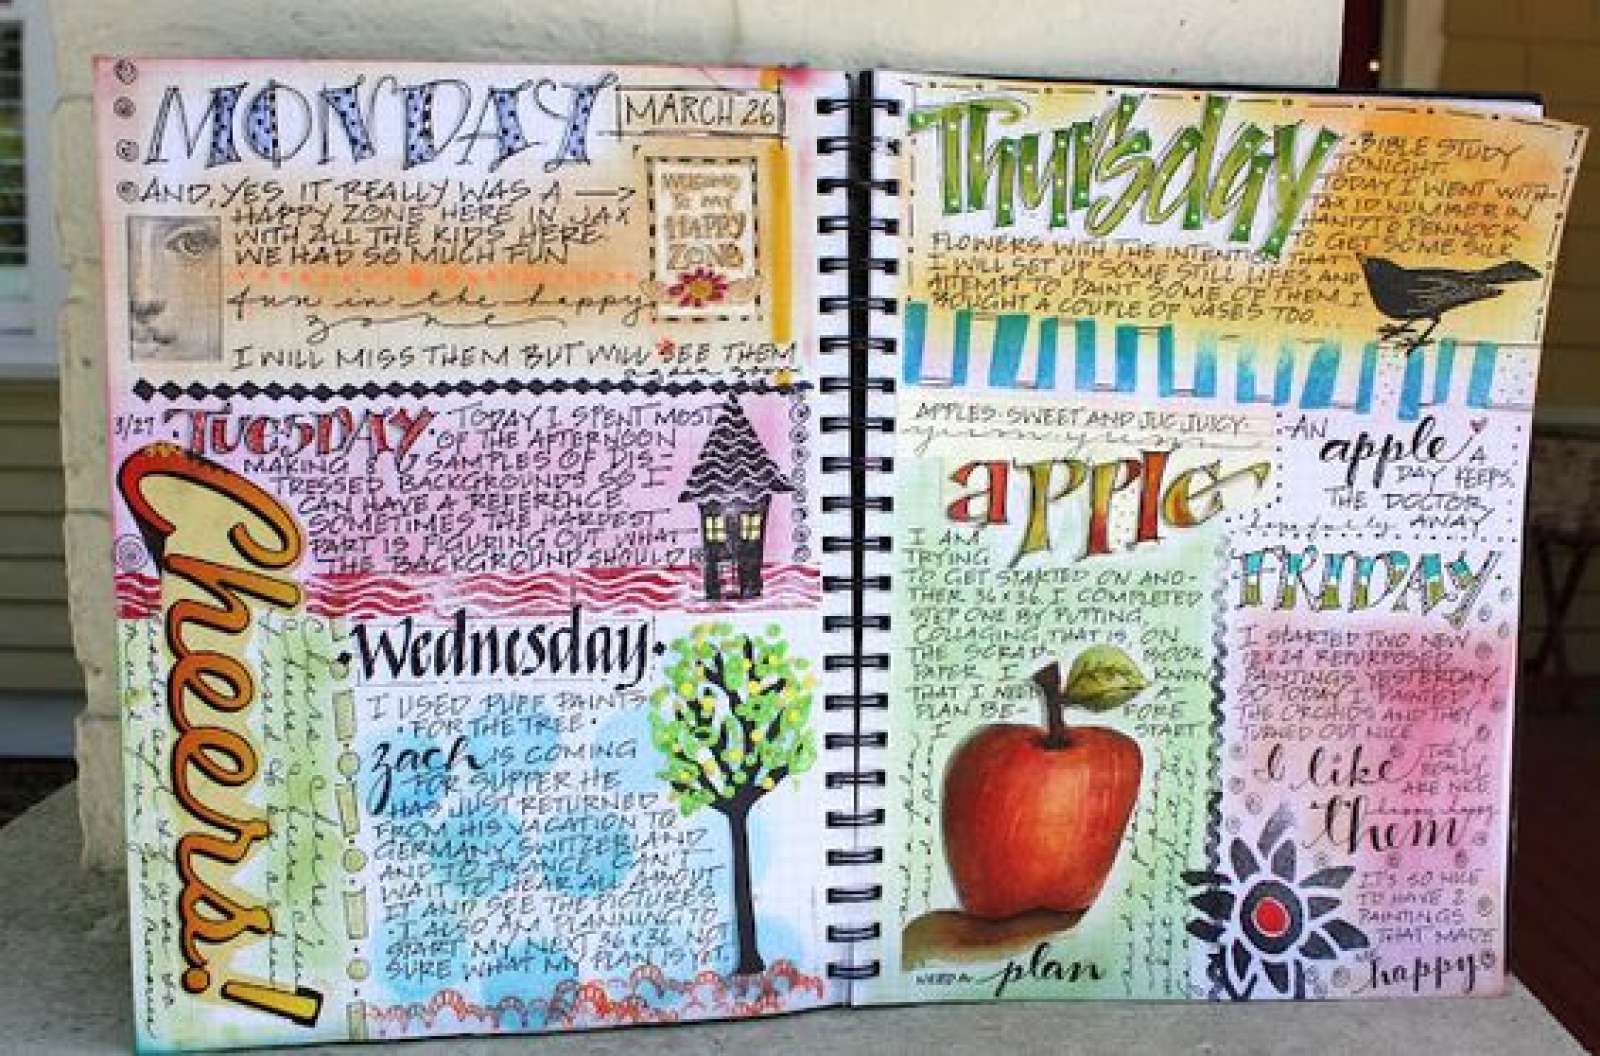 MONDAY
MARCH 26
AND, YES IT REALLY WAS A
HAPPY ZONE HERE IN JAX
WITH ALL THE KIDS HERE.
WE HAD SO MUCH FUN
WELCOME
TO MY
HAPPY
ZONE
fun in the happy
zone
I WILL MISS THEM BUT WILL SEE THEM
again soon
3/27
TUESDAY
TODAY I SPENT MOST
OF THE AFTERNOON
MAKING 8 SAMPLES OF DIS-
TRESSED BACKGROUNDS SO I
CAN HAVE A REFERENCE
SOMETIMES THE HARDEST
PART IS FIGURING OUT WHAT
THE BACKGROUND SHOULD
Cheers!
Wednesday
I USED PUFF PAINTS
FOR THE TREE
zach IS COMING
FOR SUPPER. HE
HAS JUST RETURNED
FROM HIS VACATION TO
GERMANY SWITZERLAND
AND TO FRANCE. CAN'T
WAIT TO HEAR ALL ABOUT
IT AND SEE THE PICTURES.
I ALSO AM PLANNING TO
START MY NEXT 36X36. NOT
SURE WHAT MY PLAN IS YET.
Thursday
BIBLE STUDY
TONIGHT.
TODAY I WENT WITH
TAX ID NUMBER IN
HAND TO PENNOCK
TO GET SOME SILK
FLOWERS WITH THE INTENTION THAT
I WILL SET UP SOME STILL LIFES AND
ATTEMPT TO PAINT SOME OF THEM. I
BOUGHT A COUPLE OF VASES TOO...
APPLES-SWEET AND JUC, JUICY-
yum-yum
apple
I AM
TRYING
TO GET STARTED ON ANO-
THER 36X36. I COMPLETED
STEP ONE BY PUTTING,
COLLAGING, THAT IS, ON
THE SCRAP- BOOK
PAPER I KNOW
THAT I NEED A
PLAN BE- FORE
I START
NEED A plan
AN
apple A
DAY KEEPS
THE DOCTOR
hopefully AWAY
FRIDAY
I STARTED TWO NEW
18X24 REPURPOSED
PAINTINGS YESTERDAY
SO TODAY I PAINTED
THE ORCHIDS AND THEY
TURNED OUT NICE
I like THEY
REALLY
ARE NICE
happy happy
them
IT'S SO NICE
TO HAVE 2
PAINTINGS
THAT MADE
ME happy